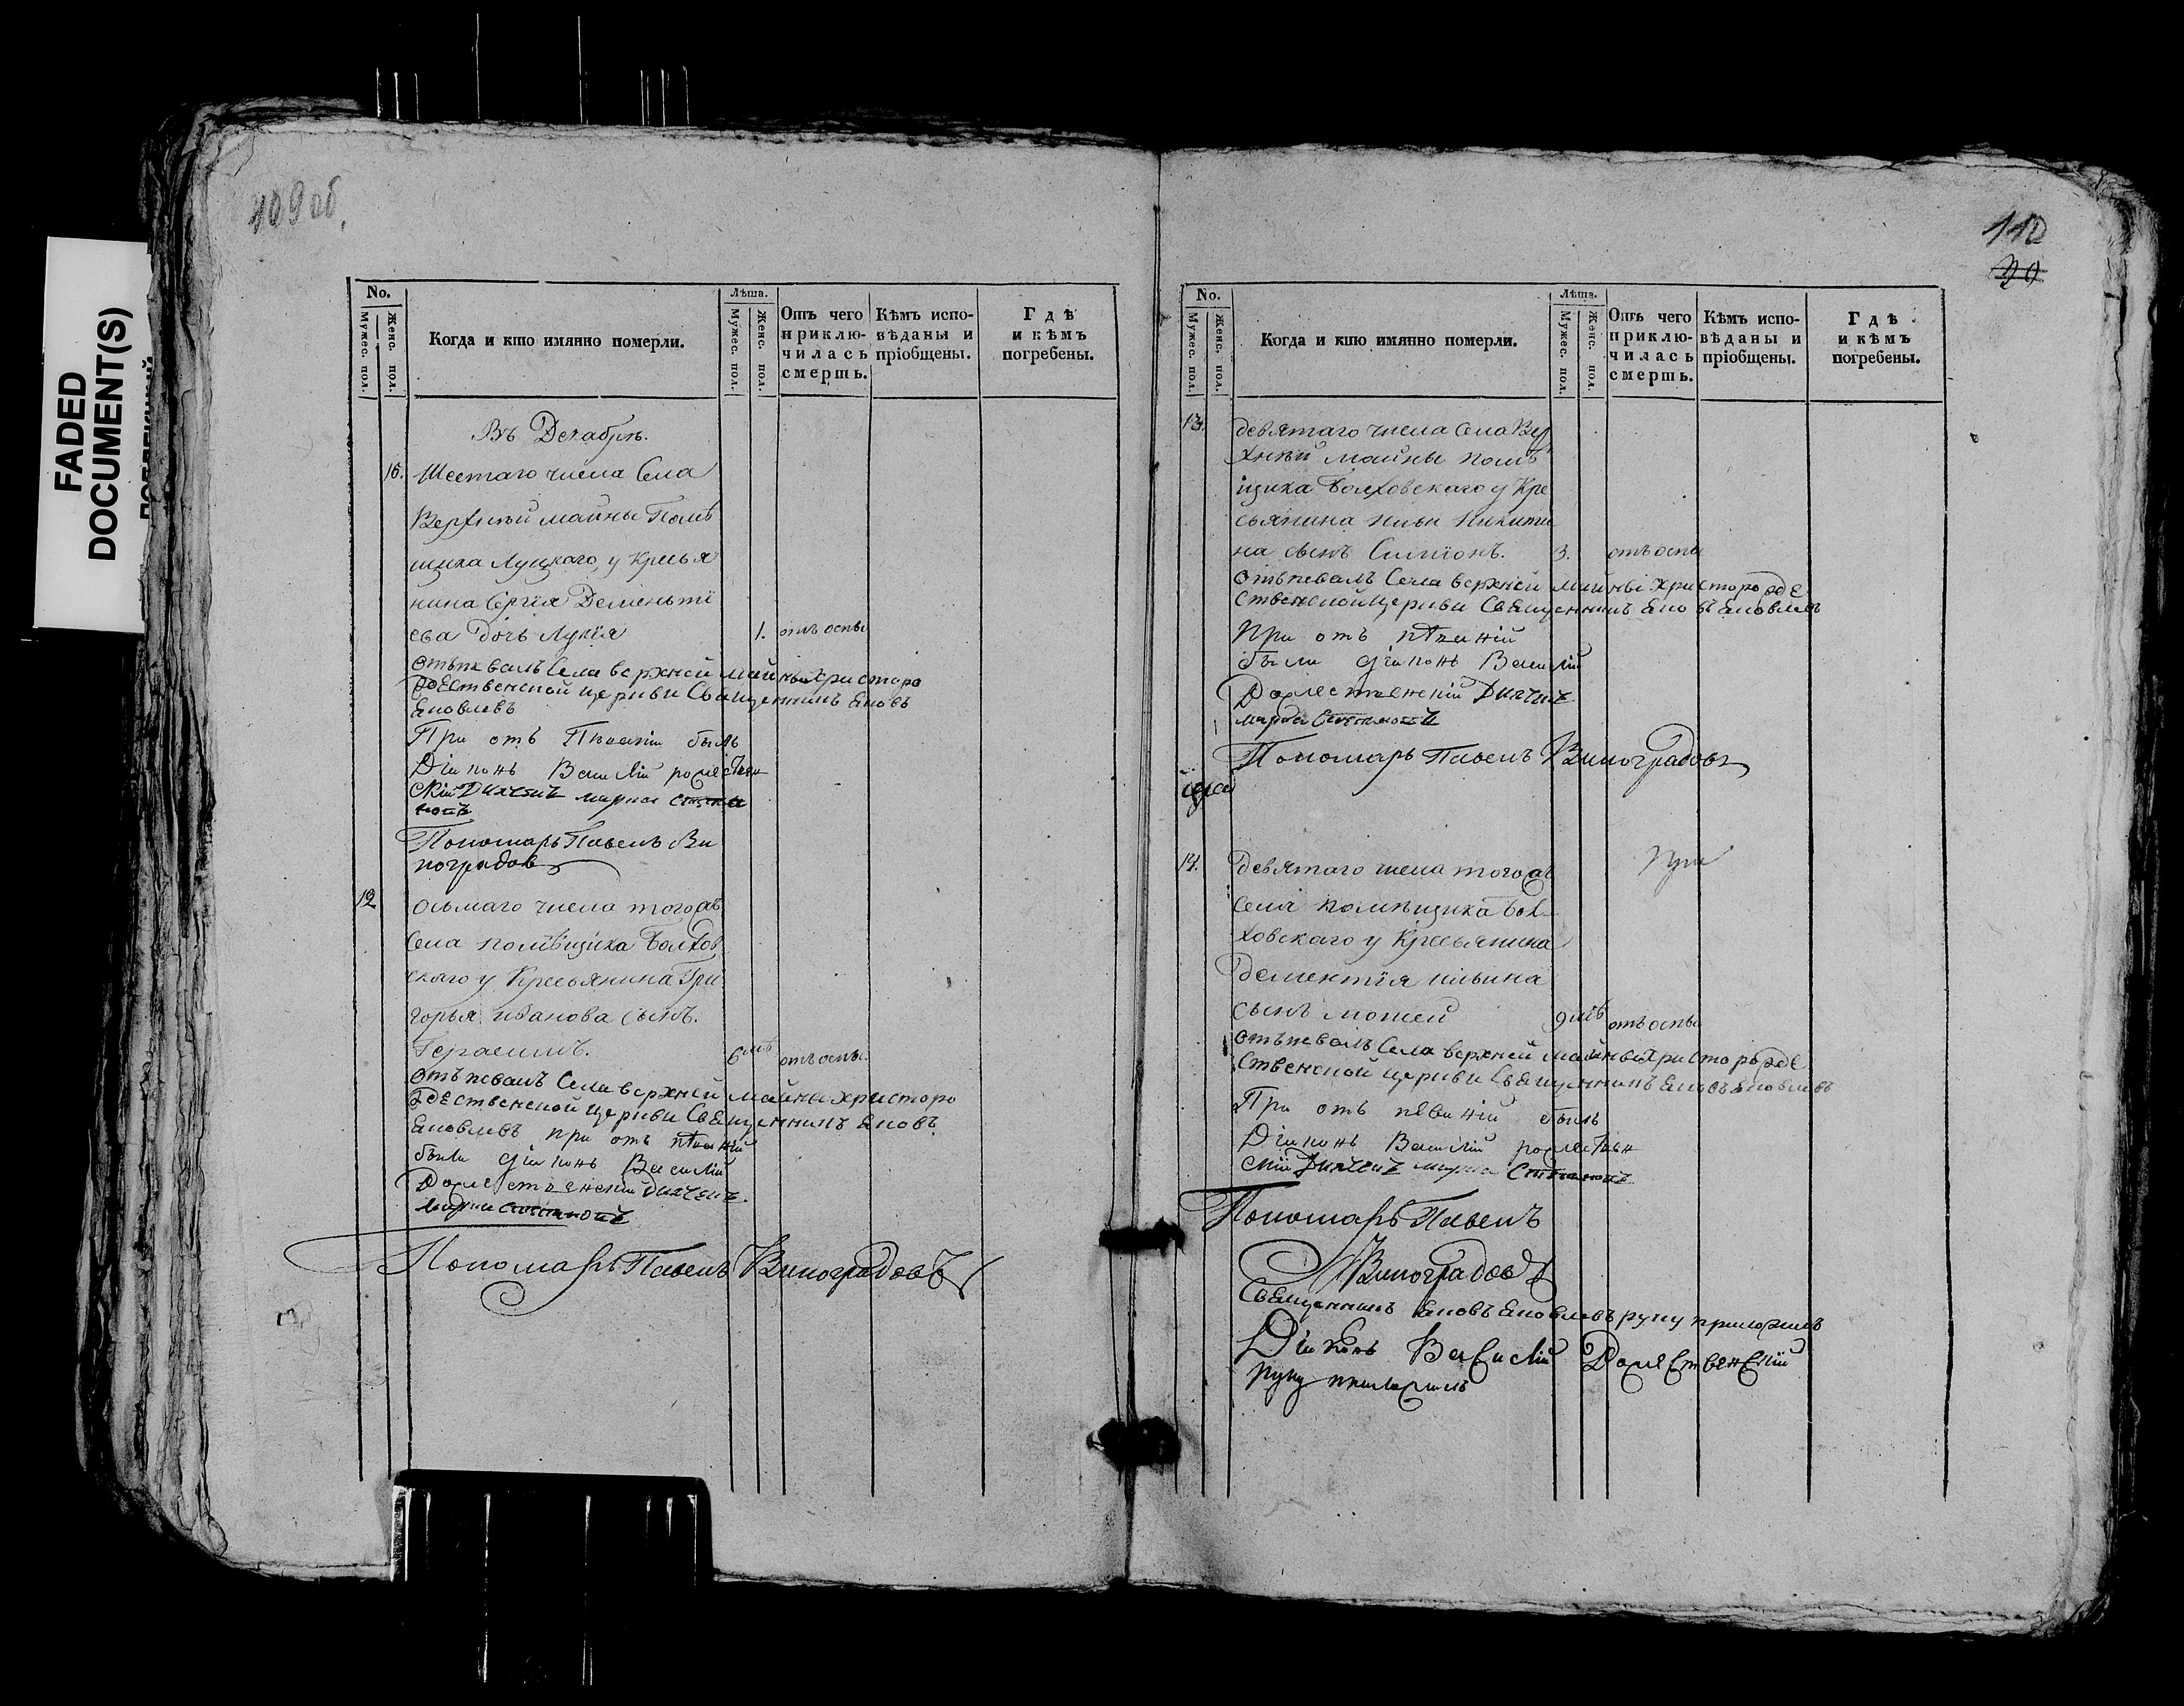 109 об.
FADED
DOCUMENT(S)
No.
Мужес. пол.
Женс. пол.
Когда и кто имянно померли.
Лѣта.
Мужес. пол.
Женс. пол.
Отъ чего
приклю-
чилась
смерть.
Кѣмъ испо-
вѣданы и
пріобщены.
Гдѣ
и кѣмъ
погребены.
Въ Декабрѣ.
16. Шестаго числа Села
Верхней майны Помѣ
щика Луцкаго, у Кресья
нина Сергія Дементі
ева дочь Лукія 1. отъ оспы
отъпевалъ Села верхней майны Христоро
ждественской церкви Священникъ Яковъ
Яковлевъ
При отъ Пѣваніи былъ
Діаконъ Василій рожествен
скій Дьячекъ
Пономарь Павелъ Ви
ноградовъ
12 осьмаго числа тогожъ
Села помѣщика Болхов
скаго у Кресьянина Гри
горья иванова сынъ.
Герасимъ. 6 мѣ отъ оспы.
отъпевалъ Села верхней майны Христоро
ждественской церкви Священникъ Яковъ
Яковлевъ при отъ пѣваніи
были діаконъ Василій
Рожественскій дьячекъ
Пономарь Павелъ Виноградовъ
110
20
No.
Мужес. пол.
Женс. пол.
Когда и кто имянно померли.
Лѣта.
Мужес. пол.
Женс. пол.
Отъ чего
приклю-
чилась
смерть.
Кѣмъ испо-
вѣданы и
пріобщены.
Гдѣ
и кѣмъ
погребены.
13. девятаго числа Села Вер
хней майны помѣ
щика Болховскаго у Кре
сьянина Ильи Никити
на сынъ Симіонъ. 3. отъ оспы
отъпевалъ Села верхней майны Христорожде
ственской церкви Священникъ Яковъ Яковлевъ
При отъ пѣваніи
были діаконъ Василій
Рожественскій Дьячекъ
Пономарь Павелъ Виноградовъ
При
14. девятаго числа тогожъ
села помѣщика Бол
ховскаго у Кресьянина
дементія ильина
сынъ мокей 9 мѣ отъ оспы
отъпевалъ Села верхней майны Христорожде
ственской церкви Священникъ Яковъ Яковлевъ
При отъ пѣваніи былъ
Діаконъ Василій рожествен
скій Дьячекъ
Пономарь Павелъ
Виноградовъ
Священникъ Яковъ Яковлевъ руку приложилъ
Діаконъ Василій Рожественскій
руку приложилъ